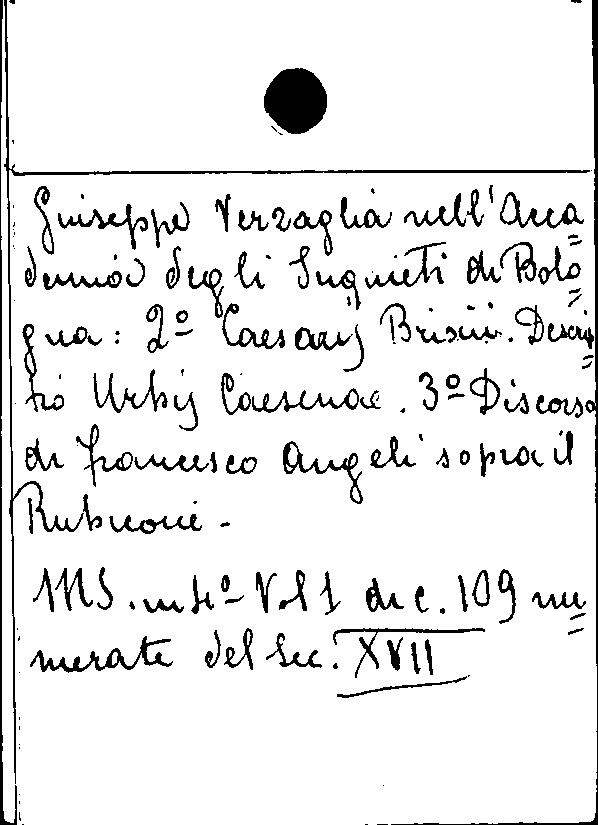 Giuseppe Verzaglia nell'Acca=
demia degli Inquieti di Bolo=
gna: 2º Caesarij Brisiii. Descrip=
tio Urbij Caesenae. 3º Discorso
di Francesco Angeli sopra il
Rubicone -
MS. in 4º- Vol 1 di c. 109 nu=
merate del Sec. XVII